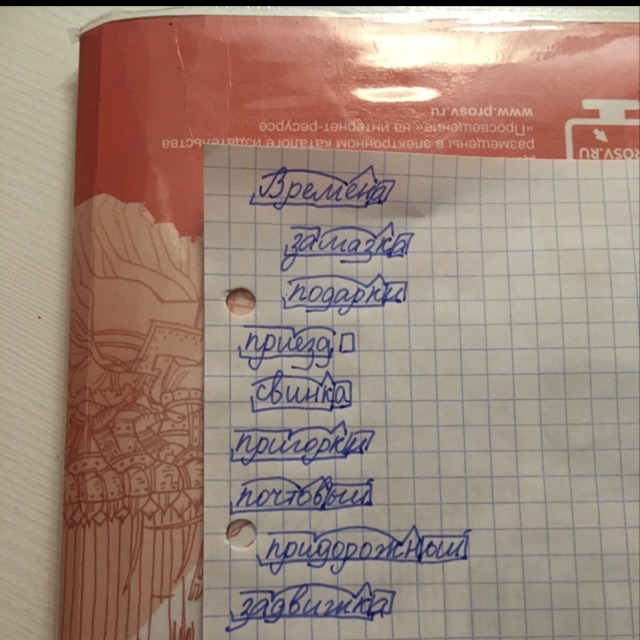 размещены в электронном каталоге издательства
«Просвещение» на интернет-ресурсе
www.prosv.ru
ROSV.RU
Времена
замазка
подарки
приезд
свинка
пригорки
почтовый
придорожный
задвижка